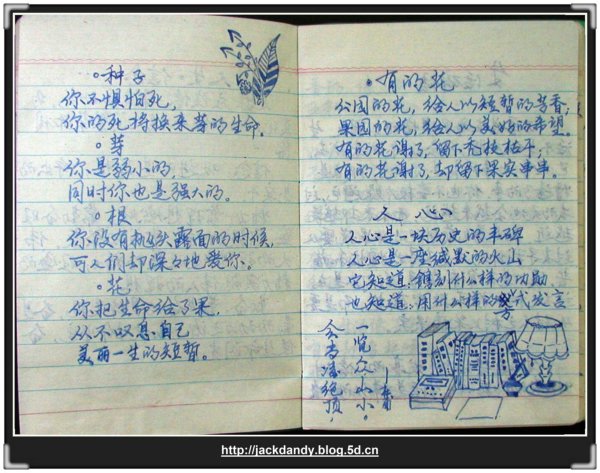 。种子
你不惧怕死，
你的死将换来芽的生命。
。芽
你是弱小的，
同时你也是强大的。
。根
你没有抛头露面的时候，
可人们却深々地爱你。
。花
你把生命给了果，
从不叹息自己
美丽一生的短暂。
。有的花
公园的花，给人以短暂的芳香；
果园的花，给人以美好的希望。
有的花谢了，留下秃枝枯干；
有的花谢了，却留下果实串串。
人心
人心是一块历史的丰碑
人心是一座缄默的火山
它知道：镌刻什么样的功勋
也知道：用什么样的方式发言
会当凌绝顶，
一览众山小。
http://jackdandy.blog.5d.cn